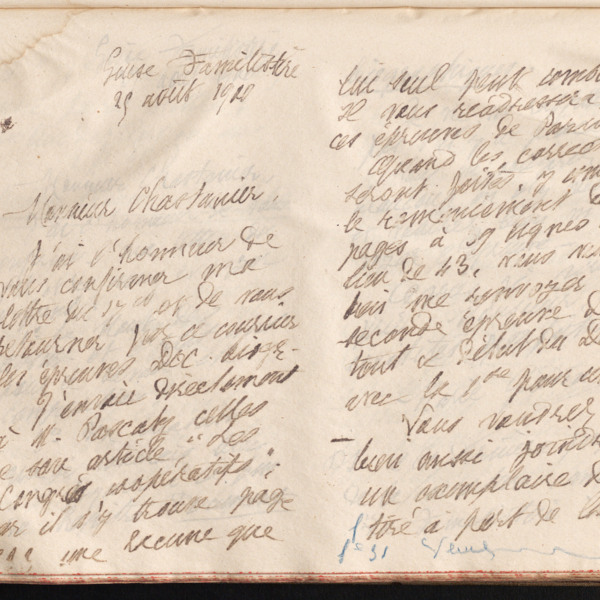 Guise Familistère
25 août 1910
Monsieur Chastanier,
J'ai l'honneur de
vous confirmer ma
lettre du 17 ct et de vous
retourner par ce courrier
les épreuves Déc.
J'envoie directement
à M. Pascaly celles
de son article "Les
Congrès coopératifs";
car il s'y trouve page
une lacune que
lui seul peut comb
Il vous réadressera
ces épreuves de Paris
Quand les correc
seront faites, y com
le remaniement d
pages à 39 lignes
lieu de 43, vous v
bien me renvoyer
seconde épreuve d
tout ce début du D
avec la 1ère pour co
Vous voudrez
bien aussi joindr
un exemplaire d
tiré à part de